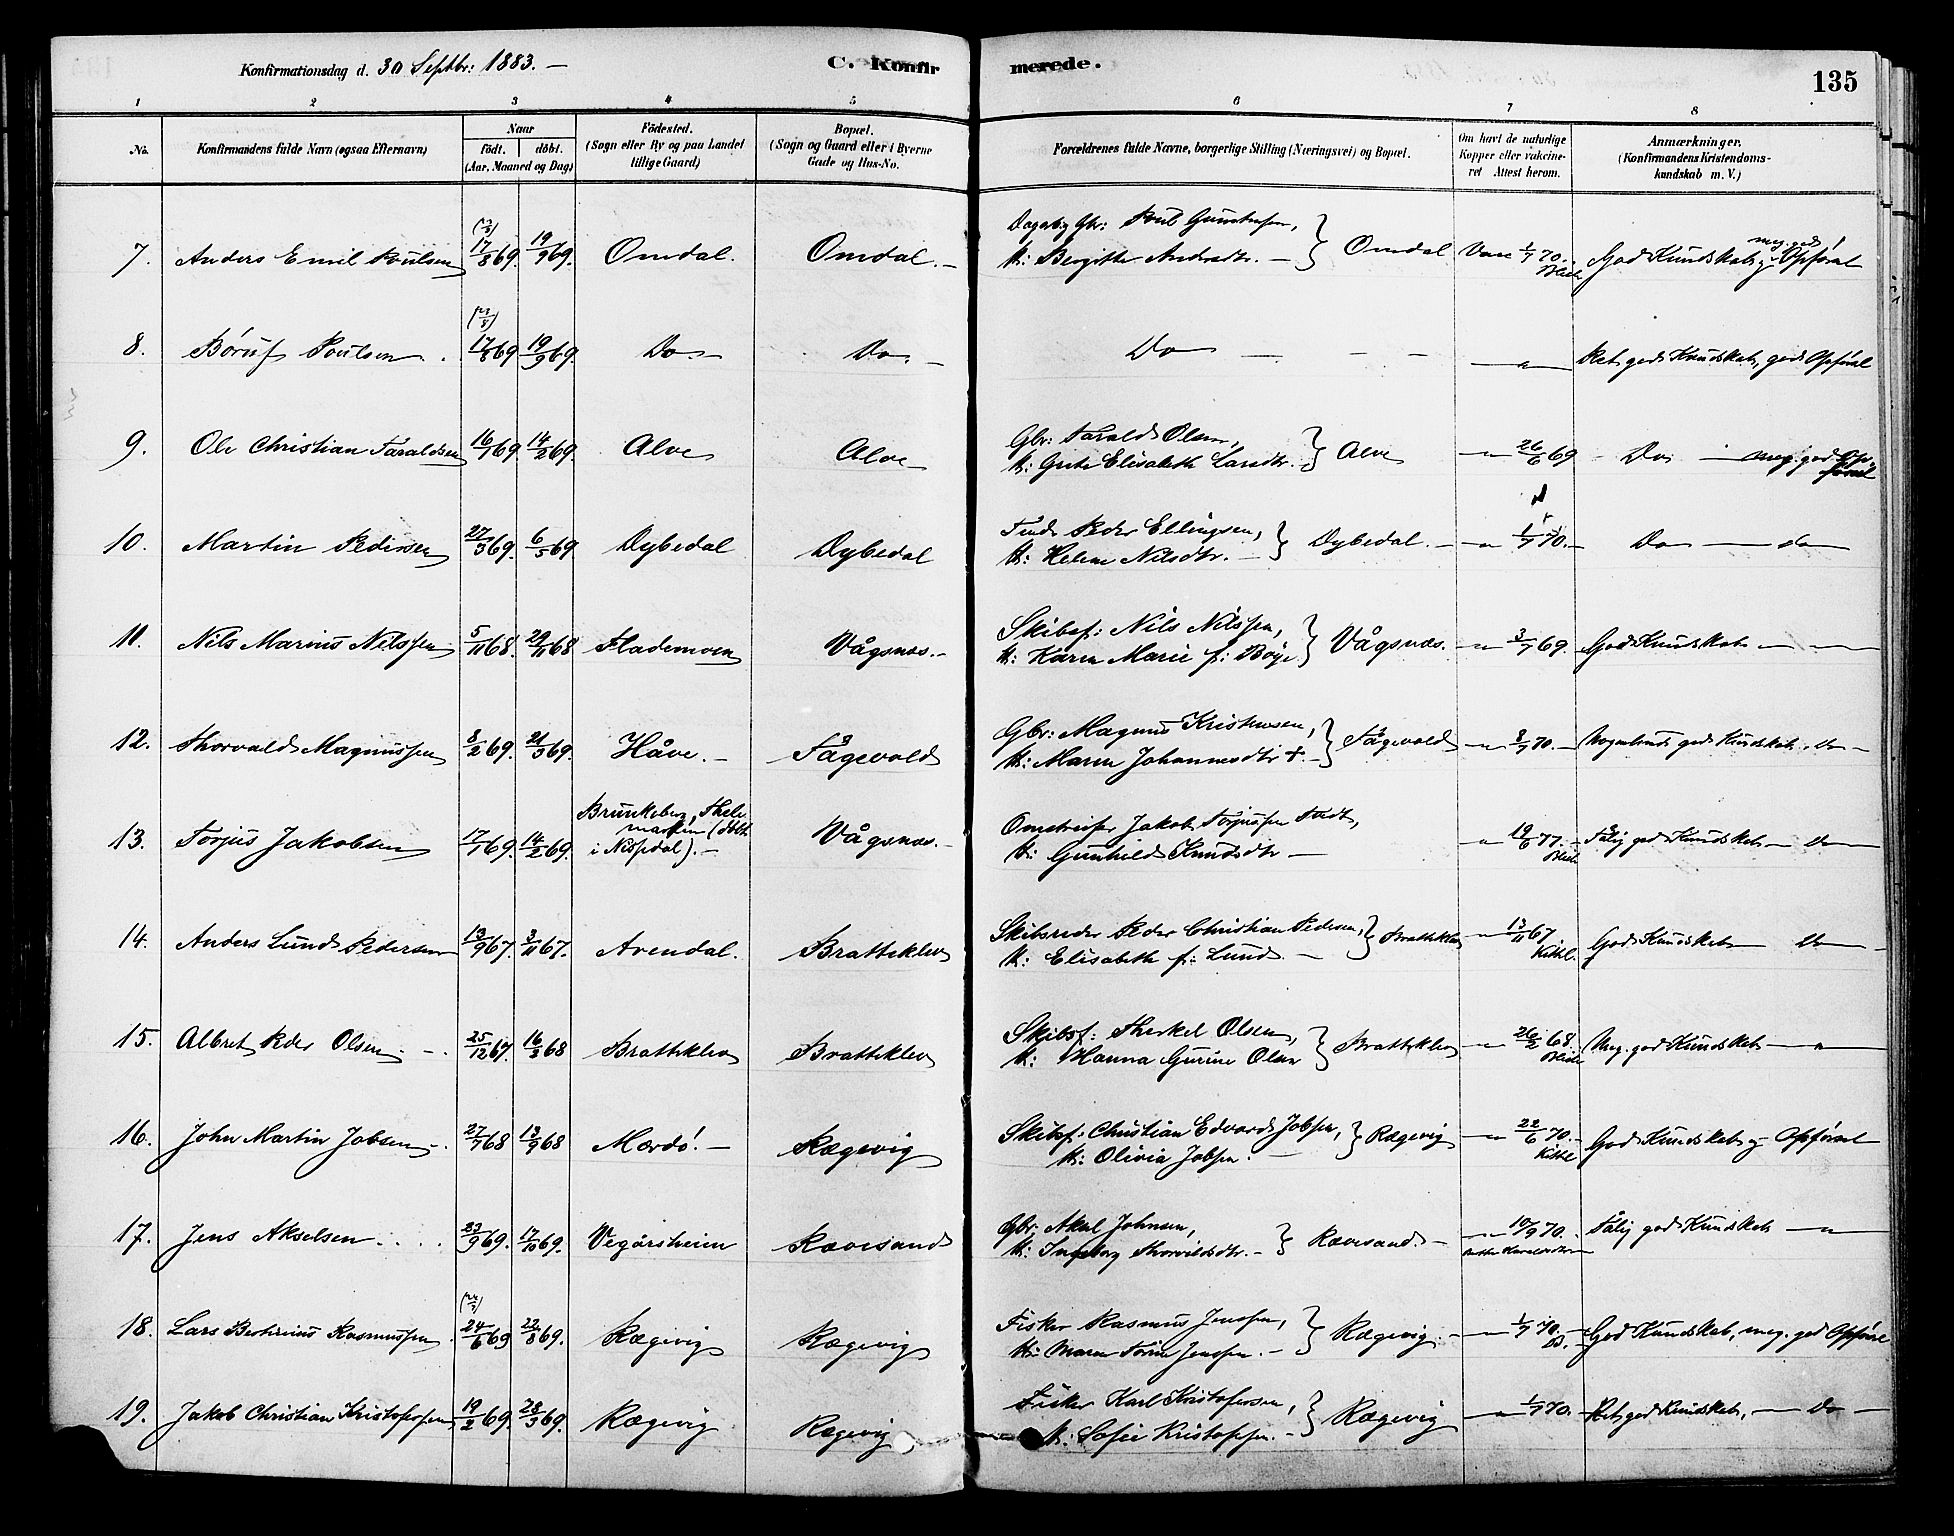 Konfirmationsdag d. 30 Septbr: 1883. –
C. Konfirmerede.
135
1 2 3 4 5 6 7 8
No.
Konfirmandens fulde Navn (ogsaa Efternavn)
Naar
födt. döbt.
(Aar, Maaned og Dag)
Födested.
(Sogn eller By og paa Landet
tillige Gaard)
Bopæl.
(Sogn og Gaard eller i Byerne
Gade og Hus-No.
Forældrenes fulde Navne, borgerlige Stilling (Næringsvei) og Bopæl.
Om havt de naturlige
Kopper eller vakcine-
ret Attest herom.
Anmærkninger.
(Konfirmandens Kristendoms-
kundskab m. V.)
7. Anders Emil Poulsen 17/8 69. 19/9 69. Omdal. Omdal. –
M: Birgitte Andersdtr. – } Omdal Vacc 1/7 70. God Kundskab, meg. god Opförsel
8. Börüf Poulsen 17/8 69 19/9 69. Do – Do – Do – – – Ret god Kundskab, god Opförsel
9. Ole Christian Taraldsen 16/1 69. 14/2 69. Alve Alve
Gbr: Tarald Olsen,
M: Grete Elisabeth Larsdtr. } Alve – 26/6 69 – Do – meg. god Opförsel
10. Martin Pedersen 27/3 69. 6/5 69 Dybedal Dybedal
Peder Ellingsen,
M: Helene Nilsdtr. – } Dybedal. – 1/7 70. – Do – do
11. Nils Marius Nilssen 5/11 68. 29/11 68 Flademoen Vågsnæs. –
Skibsf: Nils Nilssen,
M: Karen Marie f: Böye } Vågsnæs. – 3/7 69. God Kundskab –
12. Thorvald Magnussen 8/2 69. 21/3 69. Håve. – Fågevold
Gbr: Magnus Kristensen,
M: Maren Johannesdtr + . – } Fågevold – 8/7 70. – Nogenlunde god Kundskab. Do –
13. Torjus Jakobsen 17/1 69. 14/2 69. Brunkeberg, Thele-
marken (döbt
i Nissedal). – Vågsnæs. –
Omstreifer Jakob Torjussen
M: Gunhild Knudsdtr – – 19/6 77. – Tålig god Kundskab – Do
14. Anders Lund Pedersen 13/9 67. 3/11 67. Arendal. Bratteklev
Skibsreder Peder Christian Pedersen,
M: Elisabeth f: Lund. – } Bratteklev – 13/11 67 Kittel. God Kundskab – Do –
15. Albret Peder Olsen. – . 25/12 67. 16/3 68 Bratteklev Bratteklev
Skibsf: Therkel Olsen,
M: Hanna Gurine Olsen } Bratteklev – 26/2 68. Meg. god Kundskab –
16. John Martin Jobsen – . 27/7 68 13/9 68 Mærdö! – Rægevig
Skibsf: Christian Edvard Jobsen,
M: Olivia Jobsen. – } Rægevig – 22/6 70. – Kittel God Kundskab og Opförsel
17. Jens Akselsen 23/9 69. 17/10 69. Vegårsheien Rævesand
Gbr: Aksel Johnsen,
M: Ingeborg Thorvildsdtr. – } Rævesand. – 10/9 70. – Tålig god Kundskab –
18. Lars Rasmussen 24/6 69 22/8 69. Rægevig Rægevig
Fisker Rasmus Jenssen,
M: Maren Jenssen. – } Rægevig – 1/7 70. – God Kundskab, meg. god Opförsel
19. Jakob Christian Kristofersen 19/2 69. 28/3 69. Rægevig Rægevig
Fisker Karl Kristofersen,
M: Sofie Kristoffersen. – } Rægevig – 1/7 70. – Ret god Kundskab, – Do –